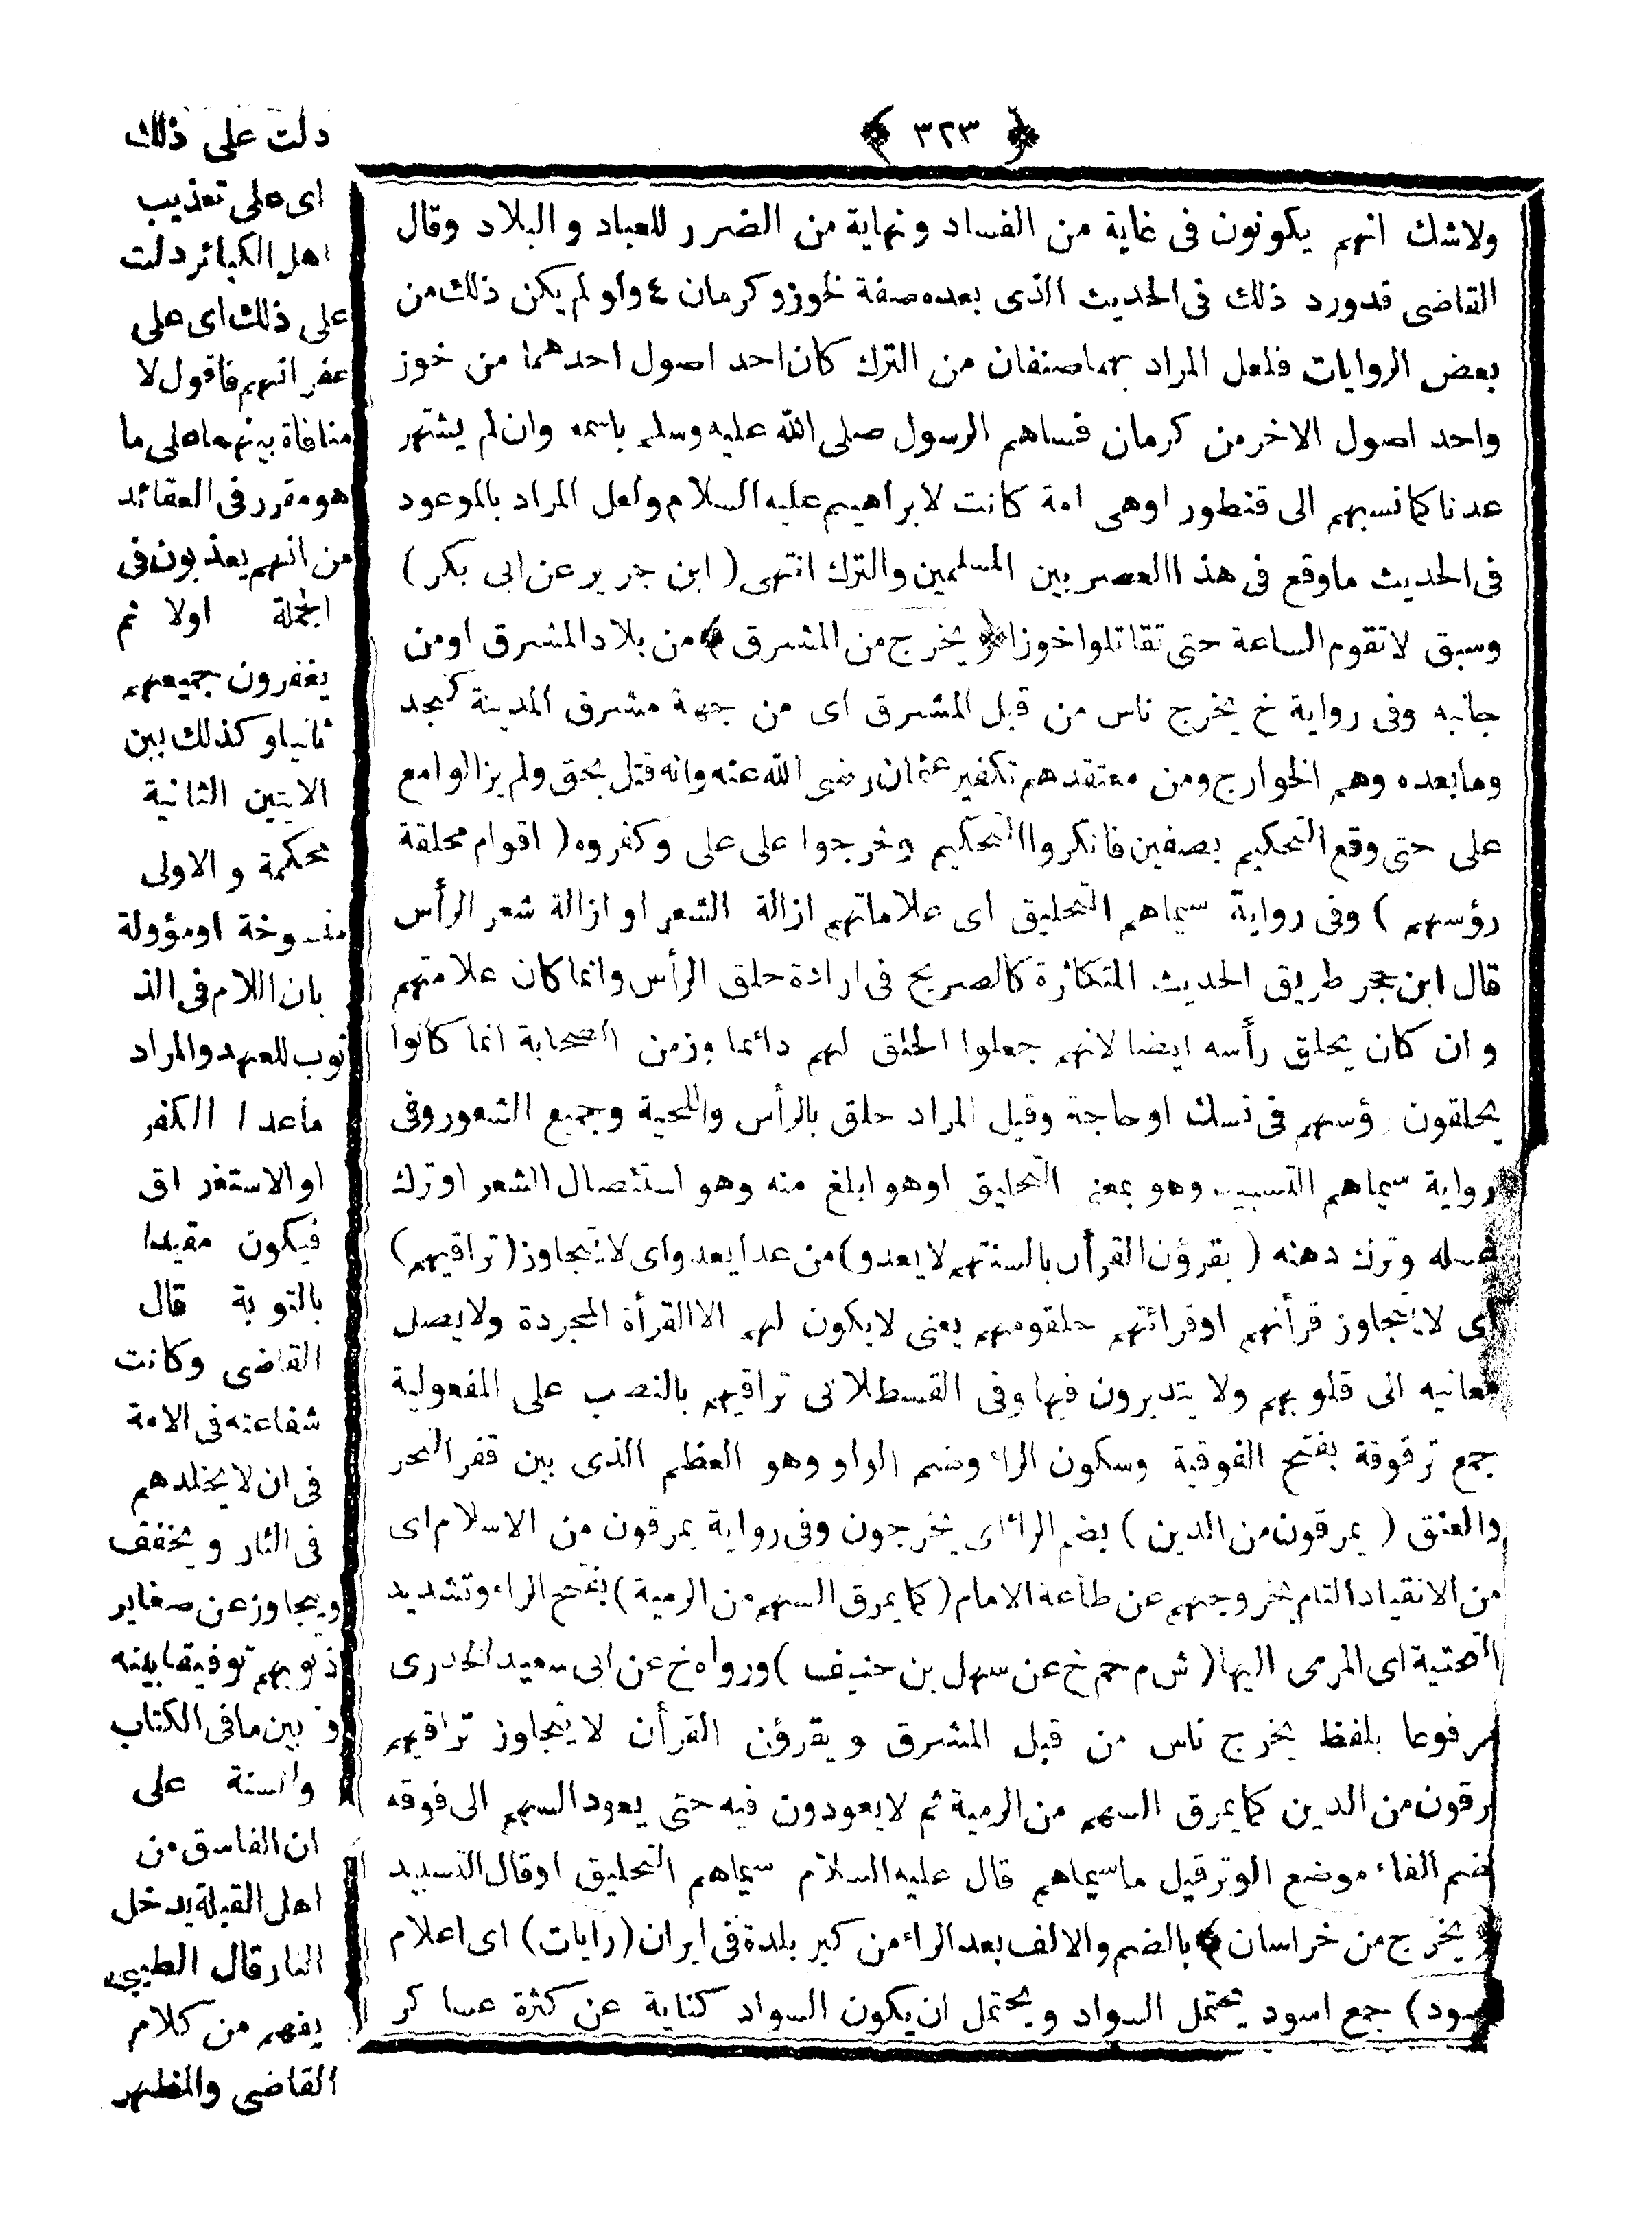 ﴿ ٣٢٣ ﴾
ولاشك انهم يكونون فى غاية من الفساد ونهاية من الضرر للعباد والبلاد وقال
القاضى قدورد ذلك فى الحديث الذى بعده صفة لخوز وكرمان ٤ ولو لم يكن ذلك من
بعض الروايات فلعل المراد بهما صنفان من الترك كان احد اصول احدهما من خوز
واحد اصول الاخر من كرمان فسماهم الرسول صلى الله عليه وسلم باسمه وان لم يشتهر
عدنا كما نسبهم الى قنطورا وهى امة كانت لابراهيم عليه السلام ولعل المراد بالموعود
فى الحديث ماوقع فى هذا العصر بين المسلمين والترك انتهى ( ابن جرير عن ابى بكر )
وسبق لاتقوم الساعة حتى تقاتلوا خوزا ﴿ يخرج من المشرق ﴾ من بلاد المشرق اومن
جانبه وفى رواية خ يخرج ناس من قبل المشرق اى من جهة مشرق المدينة كنجد
ومابعده وهم الخوارج ومن معتقدهم تكفير عثمان رضى الله عنه وانه قتل بحق ولم يزالوا مع
على حتى وقع التحكيم بصفين فانكروا التحكيم وخرجوا على على وكفروه ( اقوام محلقة
رؤسهم ) وفى رواية سيماهم التحليق اى علاماتهم ازالة الشعر او ازالة شعر الرأس
قال ابن حجر طريق الحديث المتكاثرة كالصريح فى ارادة حلق الرأس وانما كان علامتهم
وان كان يحلق رأسه ايضا لانهم جعلوا الحلق لهم دائما وزمن الصحابة انما كانوا
يحلقون رؤسهم فى نسك اوحاجة وقيل المراد حلق بالرأس واللحية وجميع الشعور وفى
رواية سيماهم التسبيب وهو بمعنى التحليق اوهو ابلغ منه وهو استئصال الشعر اوترك
غسله وترك دهنه ( يقرؤن القرأن بالسنتهم لايعدو ) من عدا يعدو اى لايتجاوز ( تراقيهم )
اى لايتجاوز قرأنهم اوقرائتهم حلقومهم يعنى لايكون لهم الا القرأة المجردة ولايصل
معانيه الى قلوبهم ولا يتدبرون فيها وفى القسطلانى تراقيهم بالنصب على المفعولية
جمع ترقوقة بفتح الفوقية وسكون الراء وضم الواو وهو العظم الذى بين قفر النحر
والعنق ( يمرقون من الدين ) بضم الراء اى يخرجون وفى رواية يمرقون من الاسلام اى
من الانقياد التام بخروجهم عن طاعة الامام ( كما يمرق السهم من الرمية ) بفتح الراء وتشديد
التحتية اى المرمى اليها ( ش م حم خ عن سهل بن حنيف ) ورواه خ عن ابى سعيد الخدرى
مرفوعا بلفظ يخرج ناس من قبل المشرق ويقرؤن القرأن لايتجاوز تراقيهم
يمرقون من الدين كما يمرق السهم من الرمية ثم لايعودون فيه حتى يعود السهم الى فوقه
بضم الفاء موضع الوتر قيل ماسيماهم قال عليه السلام سيماهم التحليق اوقال التسبيد
﴿ يخرج من خراسان ﴾ بالضم والالف بعد الراء من كبر بلدة فى ايران ( رايات ) اى اعلام
( سود ) جمع اسود يحتمل السواد ويحتمل ان يكون السواد كناية عن كثرة عساكر
دلت على ذلك
اى على تعذيب
اهل الكبائر دلت
على ذلك اى على
غفرانهم فاقول لا
منافاة بينهما على ما
هو مقرر فى العقائد
من انهم يعذبون فى
الجملة اولا ثم
يغفرون جميعهم
ثانيا وكذلك بين
الايتين الثانية
محكمة والاولى
منسوخة اومؤولة
بان اللام فى الذ
نوب للعهد والمراد
ماعدا الكفر
او الاستغراق
فيكون مقيدا
بالتوبة قال
القاضى وكانت
شفاعته فى الامة
فى ان لايخلدهم
فى النار ويخفف
ويتجاوز عن صغاير
ذنوبهم توفيقا بينه
و بين مافى الكتاب
والسنة على
ان الفاسق من
اهل القبلة يدخل
النار قال الطيبى
يفهم من كلام
القاضى والمظهر